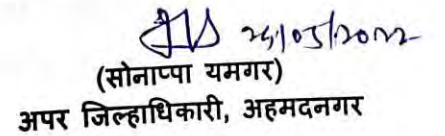 24/05/2022
(सोनाप्पा यमगर)
अपर जिल्हाधिकारी, अहमदनगर